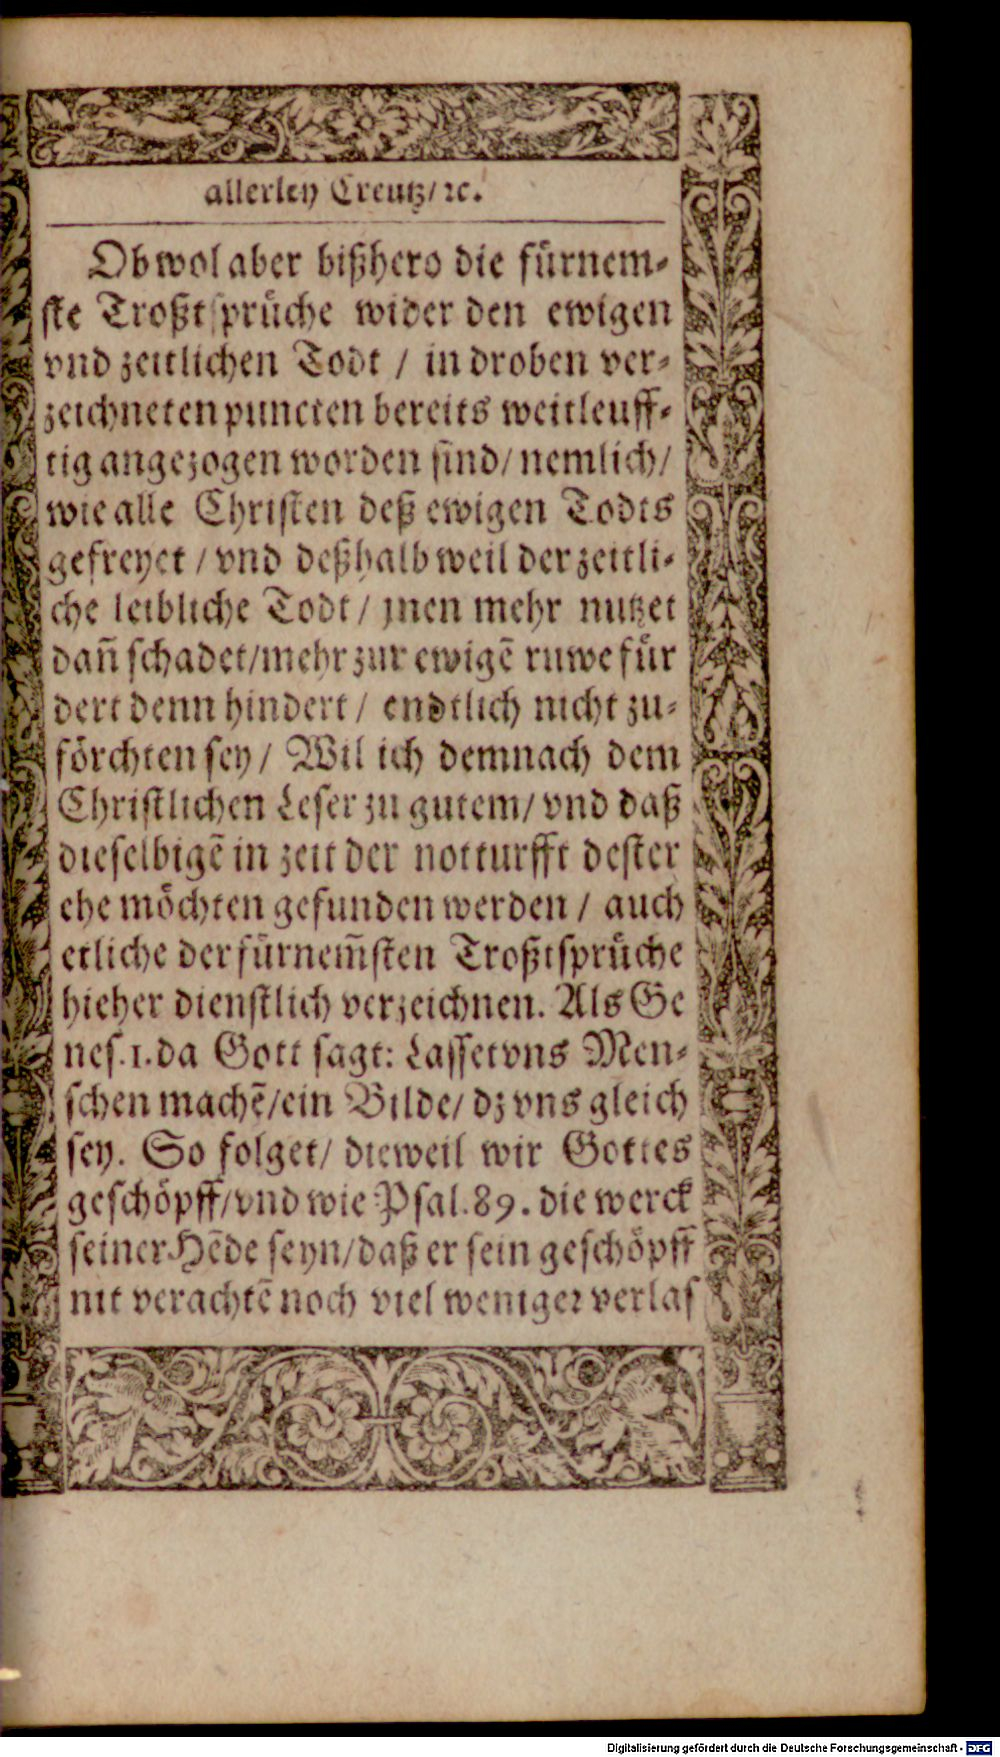 allerley Creutz/ꝛc.
Ob wol aber bißhero die fuͤrnem⸗
ste Troßtspruͤche wider den ewigen
vnd zeitlichen Todt / in droben ver⸗
zeichneten puncten bereits weitleuff⸗
tig angezogen worden sind/ nemlich/
wie alle Christen deß ewigen Todts
gefreyet / vnd deßhalb weil der zeitli⸗
che leibliche Todt / jnen mehr nutzet
dañ schadet/mehr zur ewigẽ ruwe fuͤr
dert denn hindert / endtlich nicht zu⸗
foͤrchten sey / Wil ich demnach dem
Christlichen Leser zu gutem/ vnd daß
dieselbigẽ in zeit der notturfft dester
ehe moͤchten gefunden werden / auch
etliche der fuͤrnem̃sten Troßtspruͤche
hieher dienstlich verzeichnen. Als Ge
nes.1.da Gott sagt: Lasset vns Men⸗
schen machẽ/ein Bilde/ dz vns gleich
sey. So folget/ dieweil wir Gottes
geschoͤpff/vnd wie Psal.89. die werck
seiner Hẽde seyn/daß er sein geschoͤpff
nit verachtẽ noch viel weniger verlas
Digitalisierung gefördert durch die Deutsche Forschungsgemeinschaft - DFG